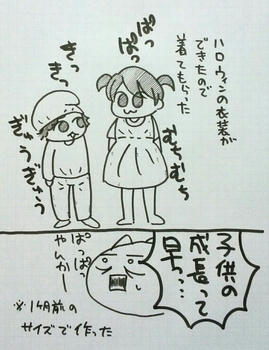 ハロウィンの衣装が
できたので
着てもらった
ぱっ
ぱっ
むち
むち
きっ
きっ
ぎゅう
ぎゅう
子供の
成長って
早っ…
ぱっぱっ
やんかー
※1ヶ月前の
サイズで作った